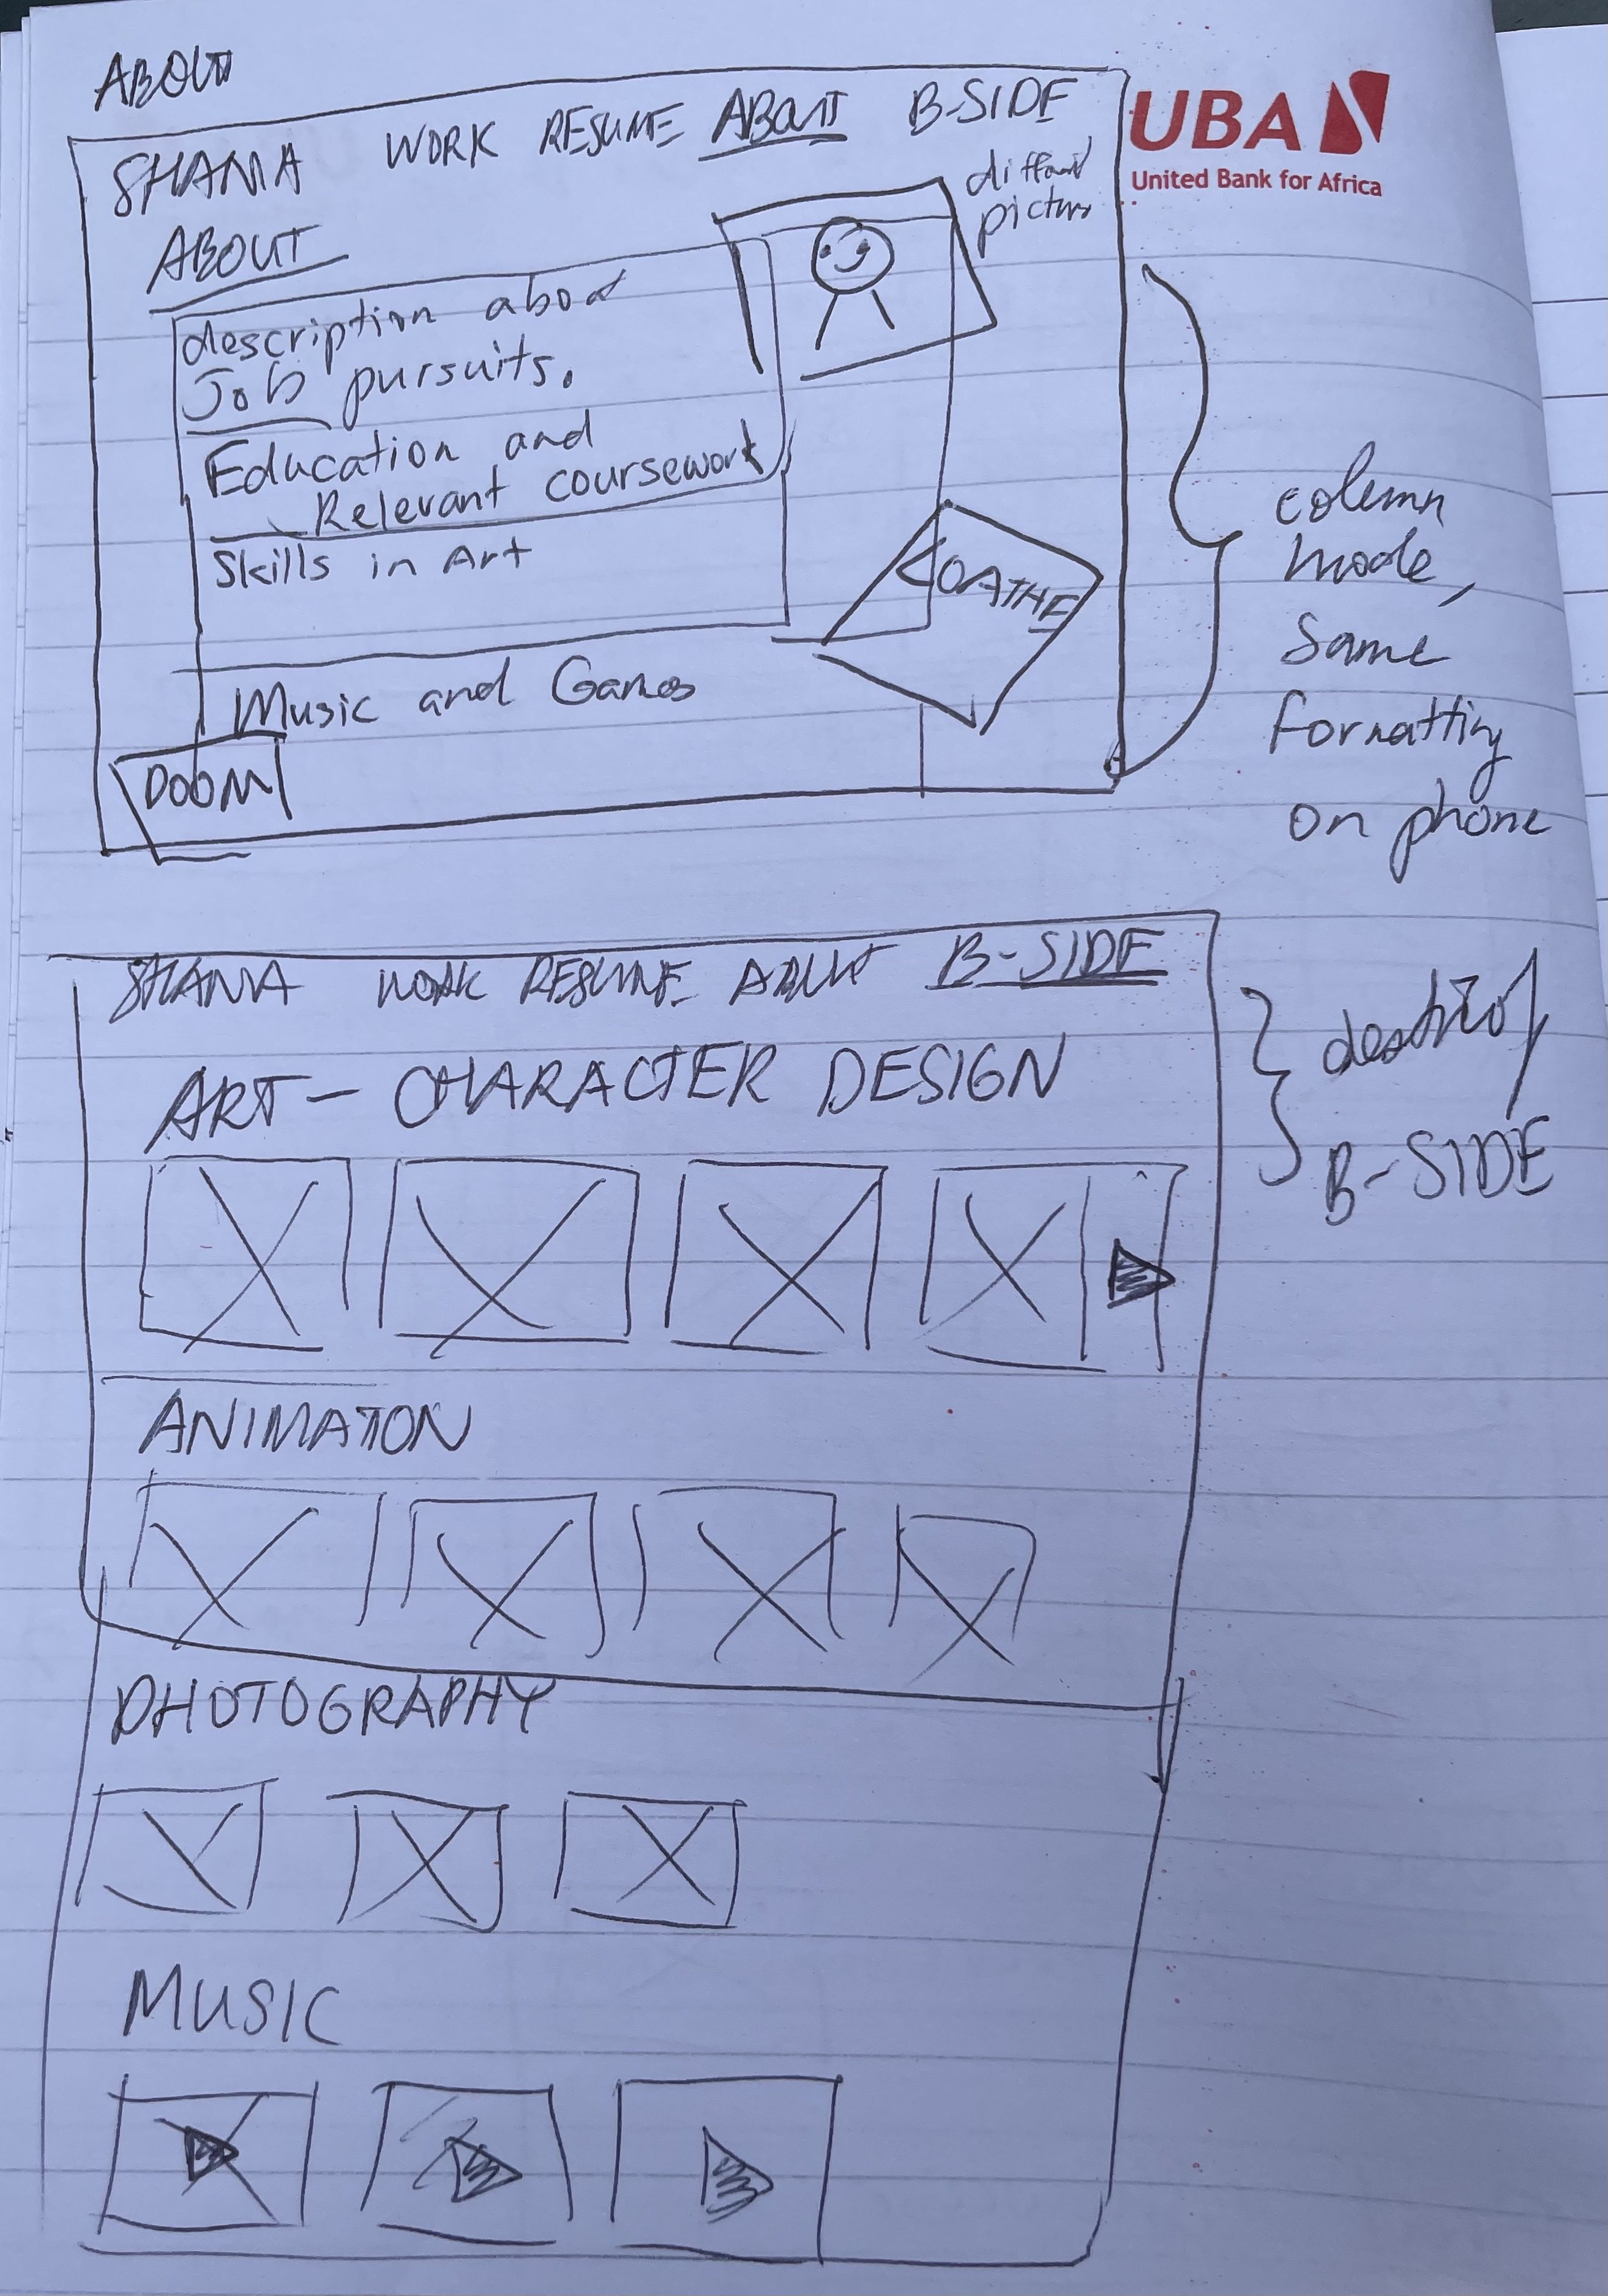 ABOUT
SHANA WORK RESUME ABOUT B-SIDE
UBA
United Bank for Africa
different
picture
ABOUT
description about
Job pursuits.
Education and
Relevant coursework
Skills in Art
LOATHE
Music and Games
DOOM
column
mode,
Same
formatting
on phone
SHANA WORK RESUME ABOUT B-SIDE
B-SIDE
ART - CHARACTER DESIGN
ANIMATION
PHOTOGRAPHY
MUSIC